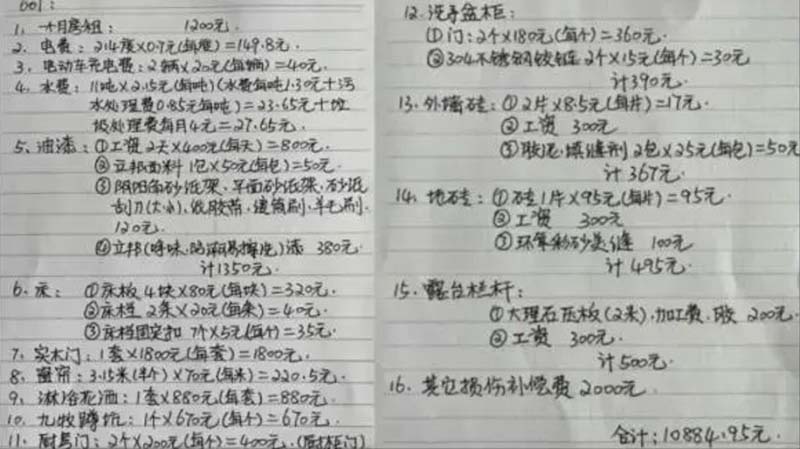 001:
1、一个月房租: 1200元.
2、电费: 214度×0.7元(每度)=149.8元.
3、电动车充电费: 2辆×20元(每辆)=40元.
4、水费: 11吨×2.15元(每吨)(水费每吨1.30元+污
水处理费0.85元每吨)=23.65元+垃
圾处理费每月4元=27.65元.
5、油漆: ①工资 2天×400元(每天)=800元.
②立邦面料 1包×50元(每包)=50元.
③阴阳角砂纸架、平面砂纸架、砂纸
刮刀(大小)、纸胶带、滚筒刷、羊毛刷.
120元.
④立邦(净味.防潮易擦洗)漆 380元.
计1350元.
6、床: ①床板 4块×80元(每块)=320元.
②床档 2条×20元(每条)=40元.
③床档固定扣 7个×5元(每个)=35元.
7、实木门: 1套×1800元(每套)=1800元.
8、窗帘: 3.15米(半个)×70元(每米)=220.5元.
9、淋浴花洒: 1套×880元(每套)=880元.
10、九牧蹲坑: 1个×670元(每个)=670元.
11、厨房门: 2个×200元(每个)=400元.(厨柜门)
12.洗手盆柜:
①门: 2个×180元(每个)=360元.
②304不锈钢铰链 2个×15元(每个)=30元
计390元.
13、外墙砖: ①2片×8.5元(每片)=17元.
②工资 300元
③胶泥.填缝剂 2包×25元(每包)=50元
计367元.
14、地砖: ①砖1片×95元(每片)=95元.
②工资 300元
③环氧彩砂美缝 100元
计495元.
15、露台栏杆:
①大理石压板(2条).加工费、胶 200元.
②工资 300元.
计500元.
16、其它损伤补偿费 2000元.
合计: 10884.95元.